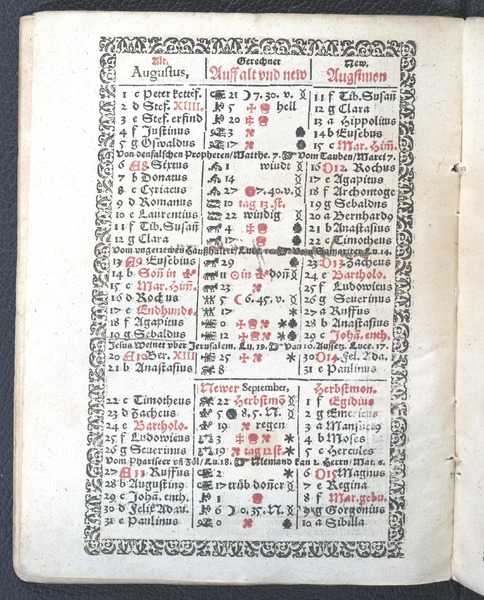 Alt. Gerechnet New.
Augustus, Auff alt vnd new Augstmon
1 c Peter kettēf. 21 7.30. v. 11 f Tib. Susañ
2 d Stef. XIII. 5 hell 12 g Clara
3 e Stef. erfind 20 13 a Hippolitus
4 f Justinus 3 14 b Eusebus
5 g Oswaldus 17 15 c Mar. Him̃.
Von den falschen Propheten/ Matthe. 7. Vom Tauben/ Marci 7.
6 Sixtus 1 windt 16 O12. Rochus
7 b Donatus 14 17 e Agapitus
8 c Cyriacus 27 7.40. v. 18 f Archontoge
9 d Romanus 10 tag 13. st. 19 g Sebaldus
10 e Laurentius 22 windig 20 a Bernhardo
11 f Tib. Susañ 4 21 b Anastasius
12 g Clara 17 22 c Timotheus
Vom vngerewen Haußhalter/ Luce Vom Samariter Lu. 14.
13 Eusebius 29 23 O13 Zacheus
14 b Soñ in 11 in doñ 24 e Bartholo.
15 c Mar. Him̃. 23 25 f Ludovicus
16 d Rochus 5 6.45. v. 26 g Severinus
17 e Endhunds. 17 27 a Ruffus
18 f Agapitus 0 28 b Anastasius
19 g Sebaldus 12 29 c Johā. enth.
Jesus Weinet vber Jerusalem. Lu. 19. Von 10. Aussetz. Luce. 17.
20 Ber. XIII 25 30 O14 Fel. Ada.
21 b Anastasius 8 31 e Paulinus
Newer September, Herbstmon.
22 c Timotheus 22 Herbstmō 1 f Egidius
23 d Zacheus 5 8.5. N. 2 g Emericus
24 e Bartholo. 19 regen 3 a Mansueg
25 f Ludovicus 3 4 b Moses
26 g Severinus 19 tag 12. st. 5 c Hercules
Vom Phariseer vñ Zöl/ Lu. 18. Niemand kan 2. Herrn/ Mat. 6.
27 Ruffus 2 6 O15 Magnus
28 b Augustiny 17 trüb doñer 7 e Regina
29 c Johā. enth. 1 8 f Mar. gebu.
30 d Felix Adau. 6 0.35. N. 9 g Gorgonius
31 e Paulinus 0 10 a Sibilla